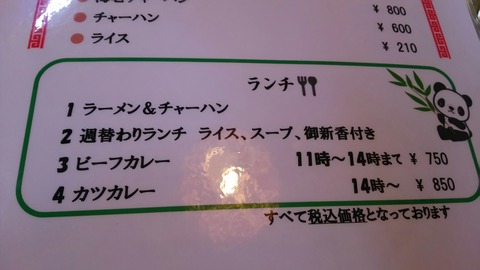 ¥ 800
チャーハン ¥ 600
ライス ¥ 210
ランチ
1 ラーメン&チャーハン
2 週替わりランチ ライス、スープ、御新香付き
3 ビーフカレー 11時～14時まて ¥ 750
4 カツカレー 14時～ ¥ 850
すべて税込価格となっております